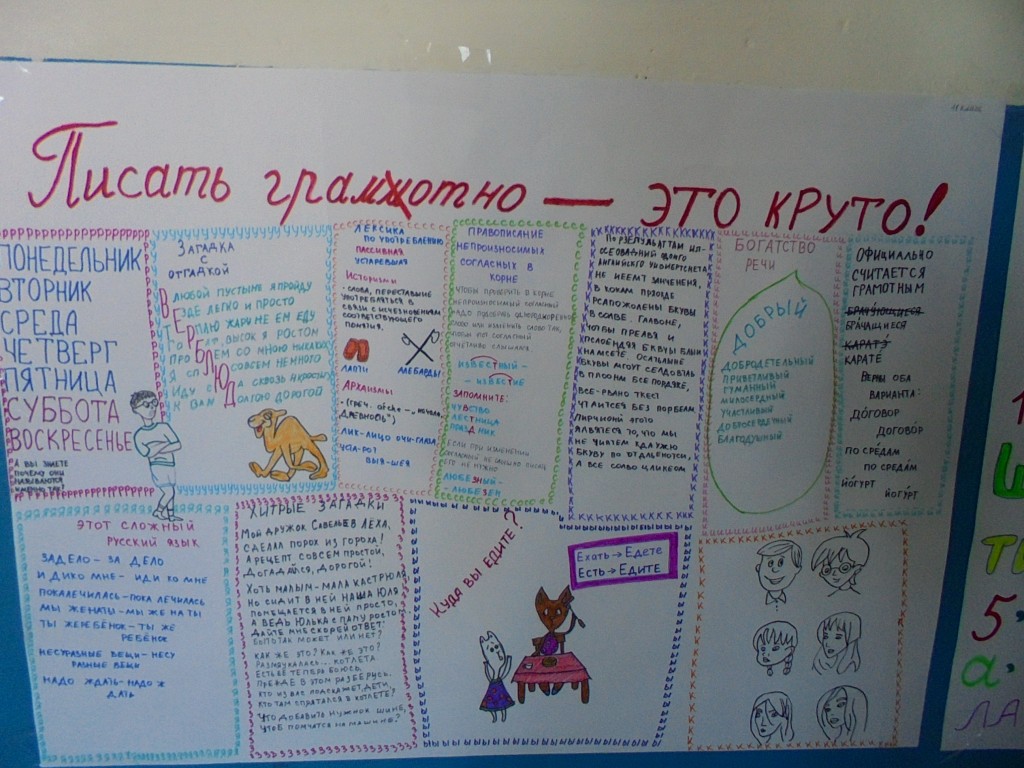 Писать грамотно — ЭТО КРУТО!
ПОНЕДЕЛЬНИК
ВТОРНИК
СРЕДА
ЧЕТВЕРГ
ПЯТНИЦА
СУББОТА
ВОСКРЕСЕНЬЕ
А ВЫ ЗНАЕТЕ
ПОЧЕМУ ОНИ
НАЗЫВАЮТСЯ
ЗАГАДКА
С
ОТГАДКОЙ
В ЛЮБОЙ ПУСТЫНЕ Я ПРОЙДУ
ВЕЗДЕ ЛЕГКО И ПРОСТО
ТЕРПЛЮ ЖАРУ НЕ ЕМ ЕДУ
ВЫСОК Я РОСТОМ
СО МНОЮ
СОВСЕМ НЕМНОГО
ИДУ СКВОЗЬ
К ВАМ ДОЛГОЮ ДОРОГОЙ
ЛЕКСИКА
ПО УПОТРЕБЛЕНИЮ
ПАССИВНАЯ
УСТАРЕВШАЯ
ИСТОРИЗМЫ
- СЛОВА, ПЕРЕСТАВШИЕ
УПОТРЕБЛЯТЬСЯ В
СВЯЗИ С ИСЧЕЗНОВЕНИЕМ
СООТВЕТСТВУЮЩЕГО
ПОНЯТИЯ.
ЛАПТИ АЛЕБАРДЫ
АРХАИЗМЫ
- (ГРЕЧ. НАЧАЛО,
ДРЕВНОСТЬ")
ЛИК-ЛИЦО ОЧИ-ГЛАЗА
УСТА-РОТ
ВЫЯ-ШЕЯ
ПРАВОПИСАНИЕ
НЕПРОИЗНОСИМЫХ
СОГЛАСНЫХ В
КОРНЕ
ЧТОБЫ ПРОВЕРИТЬ В КОРНЕ
НЕПРОИЗНОСИМЫЙ СОГЛАСНЫЙ
НАДО ПОДОБРАТЬ ОДНОКОРЕННОЕ
СЛОВО ИЛИ ИЗМЕНИТЬ СЛОВО ТАК,
ЧТОБЫ СОГЛАСНЫЙ
СЛЫШАЛСЯ.
ИЗВЕСТНЫЙ -
- ИЗВЕСТИЕ
ЗАПОМНИТЕ:
ЧУВСТВО
ЛЕСТНИЦА
ПРАЗДНИК
ЕСЛИ ПРИ ИЗМЕНЕНИИ
ЕГО НЕ НУЖНО
ЛЮБЕЗНЫЙ -
- ЛЮБЕЗЕН
ПО РЗЕЛУЛЬАТАМ ИЛ-
СЕОВАДНИЙ ОДНОГО
АНГЛИЙСКОГО УНИВЕРТИСЕТА
НЕ ИЕЕМТ ЗНЧЕНЕИЯ,
В КОКАМ ПРЯОДКЕ
РСАПОЛЖЕНЫ БКУВЫ
В СОЛВЕ. ГЛАВОНЕ,
ЧТОБЫ ПРЕВАЯ И
ПСОЛЕНДЯЯ БКУВЫ БЫЛИ
НА МСЕТЕ. ОСАТЬЛЫНЕ
БУКВЫ МОГУТ
В ПЛООНМ БЕСПОРДЯКЕ,
ВСЕ-РАВНО ТКЕСТ
ЧТАИТСЕЯ БЕЗ ПОРБЕЛМ.
ПИРЧИНОЙ ЭГОТО
ЯЛВЯТЕСЯ ТО, ЧТО МЫ
НЕ ЧИАТЕМ КДАЖУЮ
БКУВУ ПО ОТДЛЕНОСТИ,
А ВСЕ СОЛВО ЦЛИКЕОМ
БОГАТСТВО
РЕЧИ
ДОБРЫЙ
ДОБРОДЕТЕЛЬНЫЙ
ПРИВЕТЛИВЫЙ
ГУМАННЫЙ
МИЛОСЕРДНЫЙ
УЧАСТЛИВЫЙ
ДОБРОСЕРДЕЧНЫЙ
БЛАГОДУШНЫЙ
ОФИЦИАЛЬНО
СЧИТАЕТСЯ
ГРАМОТНЫМ
БРАЧУЮЩИЕСЯ
БРАЧАЩИЕСЯ
КАРАТЭ
КАРАТЕ
ВЕРНЫ ОБА
ВАРИАНТА:
ДО́ГОВОР
ДОГОВО́Р
ПО СРЕ́ДАМ
ПО СРЕДА́М
ЙО́ГУРТ
ЙОГУ́РТ
ЭТОТ СЛОЖНЫЙ
РУССКИЙ ЯЗЫК
ЗАДЕЛО - ЗА ДЕЛО
И ДИКО МНЕ - ИДИ КО МНЕ
ПОКАЛЕЧИЛАСЬ-ПОКА ЛЕЧИЛАСЬ
МЫ ЖЕНАТЫ - МЫ ЖЕ НА ТЫ
ТЫ ЖЕРЕБЁНОК - ТЫ ЖЕ
РЕБЁНОК
НЕСУРАЗНЫЕ ВЕЩИ - НЕСУ
РАЗНЫЕ ВЕЩИ
НАДО ЖДАТЬ-НАДОЖ
ДАТЬ
ХИТРЫЕ ЗАГАДКИ
МОЙ ДРУЖОК САВЕЛЬЕВ ЛЁХА,
СДЕЛАЛ ПОРОХ ИЗ ГОРОХА!
А РЕЦЕПТ СОВСЕМ ПРОСТОЙ,
ДОГАДАЙСЯ, ДОРОГОЙ!
ХОТЬ МАЛЫМ-МАЛА КАСТРЮЛЯ
НО СИДИТ В НЕЙ НАША ЮЛЯ
ПОМЕЩАЕТСЯ В НЕЙ ПРОСТО,
А ВЕДЬ ЮЛЬКА С ПАПУ РОСТОМ
ДАЙТЕ МНЕ СКОРЕЙ ОТВЕТ:
БЫТЬ ТАК МОЖЕТ ИЛИ НЕТ?
КАК ЖЕ ЭТО? КАК ЖЕ ЭТО?
РАЗМЯУКАЛАСЬ... КОТЛЕТА
ЕСТЬ ЕЁ ТЕПЕРЬ БОЮСЬ,
ПРЕЖДЕ В ЭТОМ РАЗБЕРУСЬ.
КТО ИЗ ВАС ПОДСКАЖЕТ, ДЕТИ,
КТО ТАМ СПРЯТАЛСЯ В КОТЛЕТЕ?
ЧТО ДОБАВИТЬ НУЖНО К ШИНЕ,
ЧТОБ ПОМЧАТЬСЯ НА МАШИНЕ?
КУДА ВЫ ЕДИТЕ?
ЕХАТЬ → ЕДЕТЕ
ЕСТЬ → ЕДИТЕ
5,
а.
ЛА